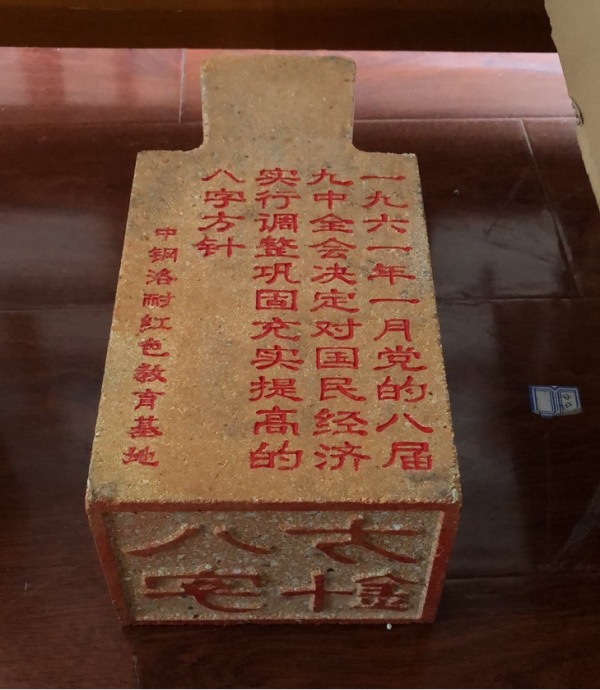 一九六一年一月党的八届
九中全会决定对国民经济
实行调整巩固充实提高的
八字方针
中钢洛耐红色教育基地